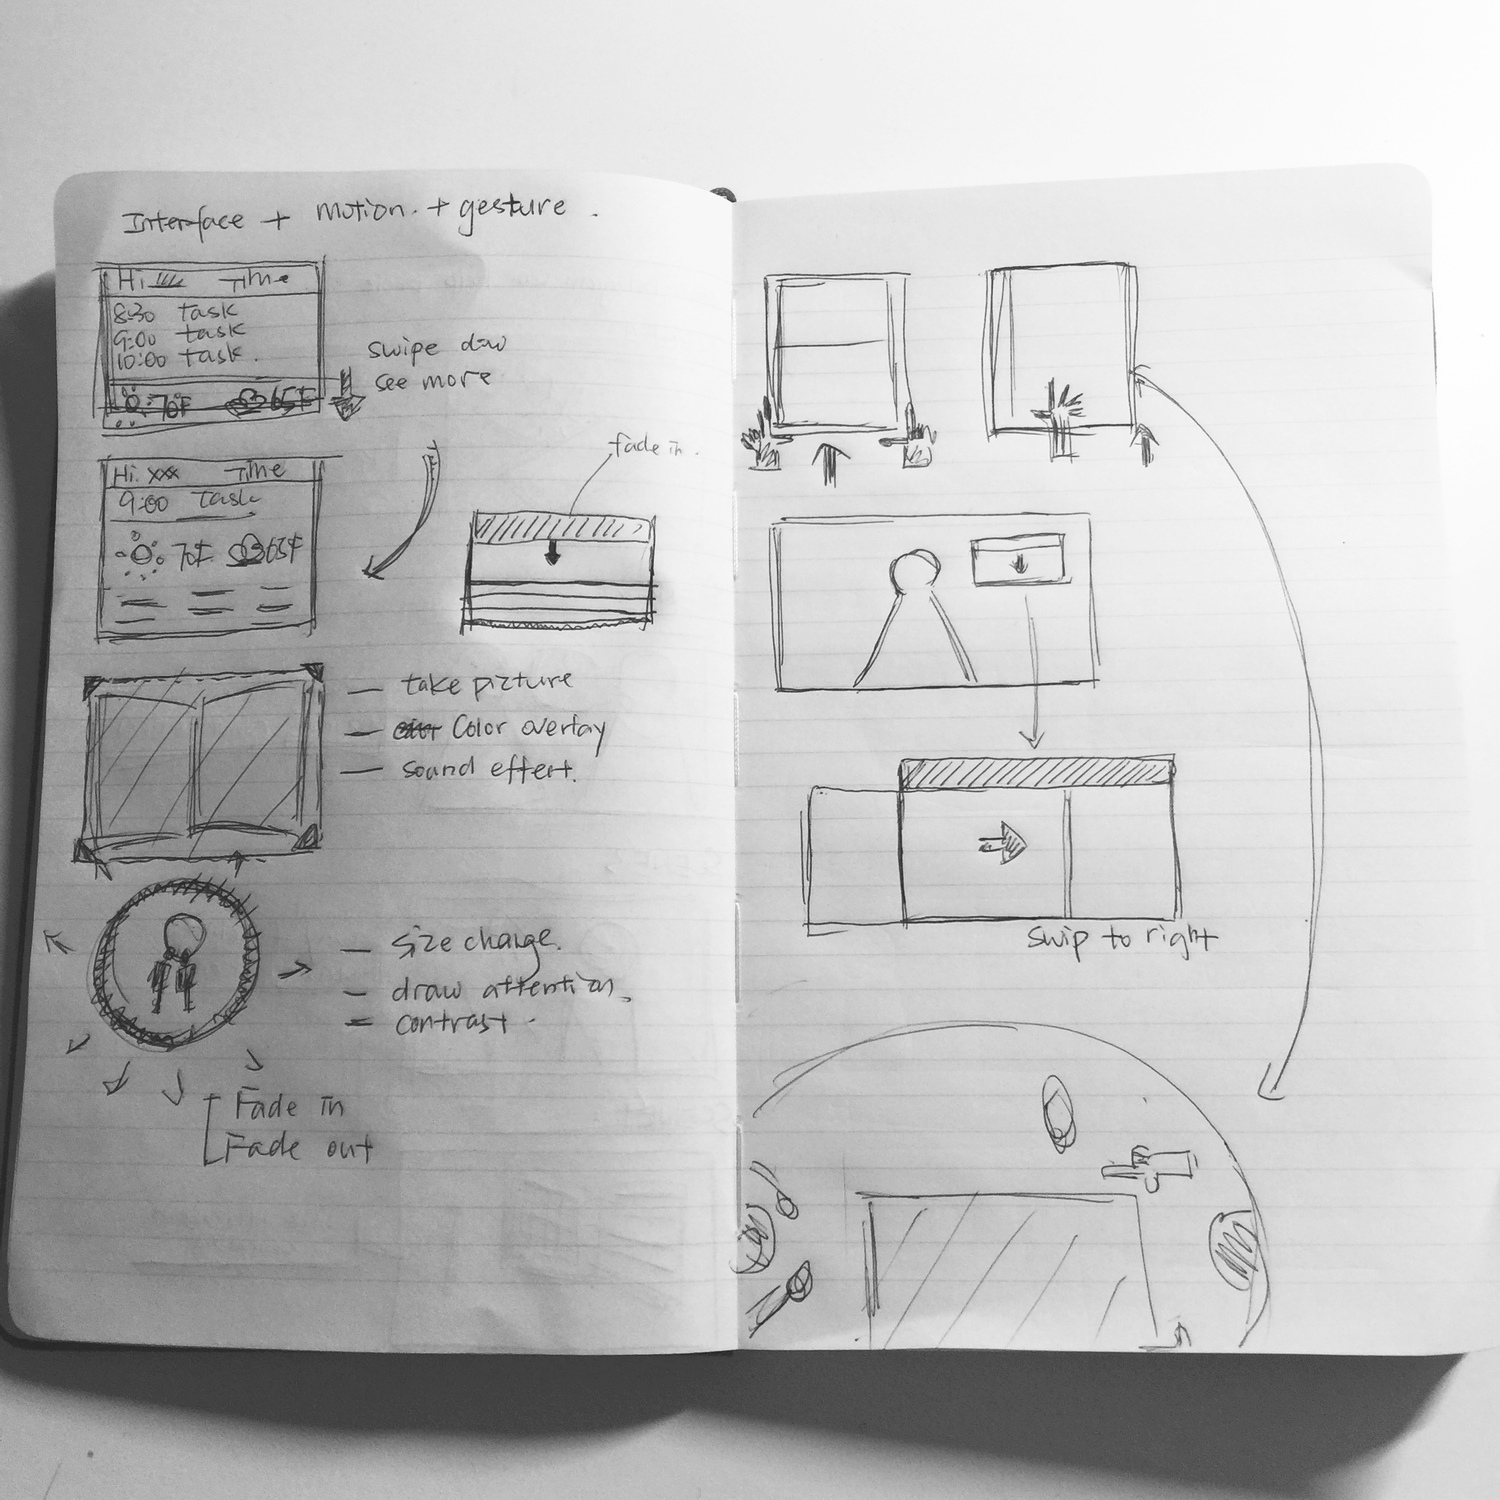 Interface + motion. + gesture.
Hi Time
8:30 task
9:00 task
10:00 task.
70°F 65°F
swipe dow
see more
Hi. xxx Time
9:00 task
70°F 65°F
fade in.
— take picture
— Color overlay
— sound effect.
— size change.
— draw attention.
— contrast.
Fade in
Fade out
swip to right